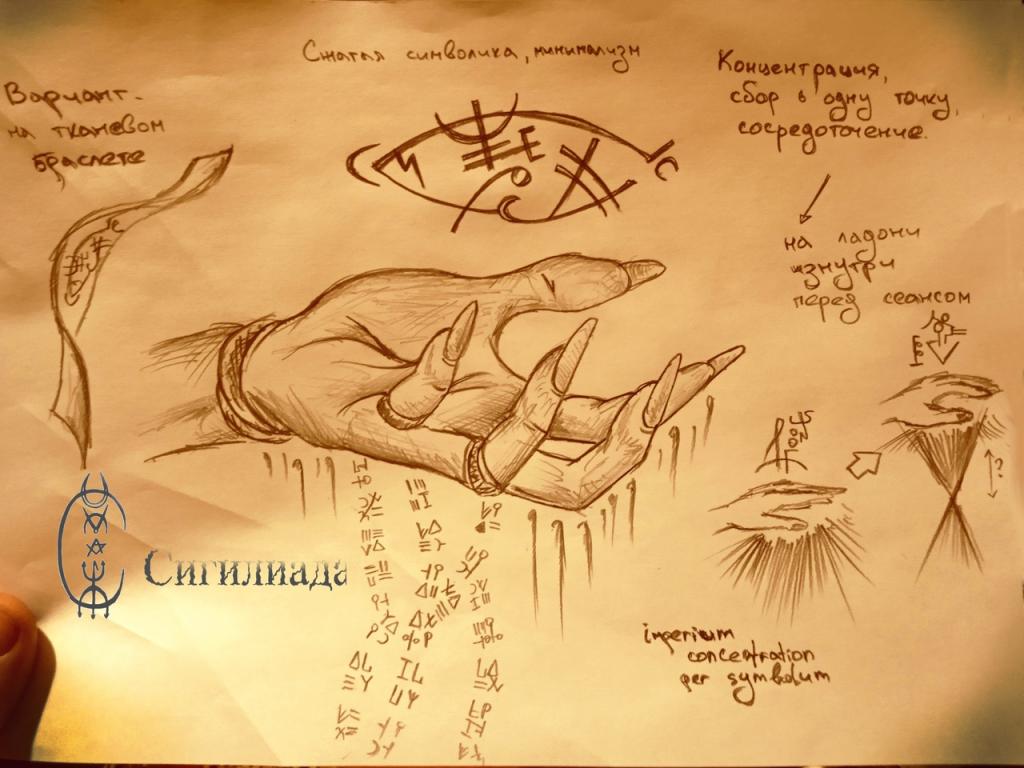 Сжатая символика, минимализм
Вариант
на тканевом
браслете
Концентрация,
сбор в одну точку,
сосредоточение.
на ладони
изнутри
перед сеансом
Сигилиада
imperium
concentration
per symbolum